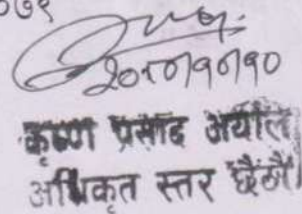 २०८०।१०।१०
कृष्ण प्रसाद अर्याल
अधिकृत स्तर छैठौं